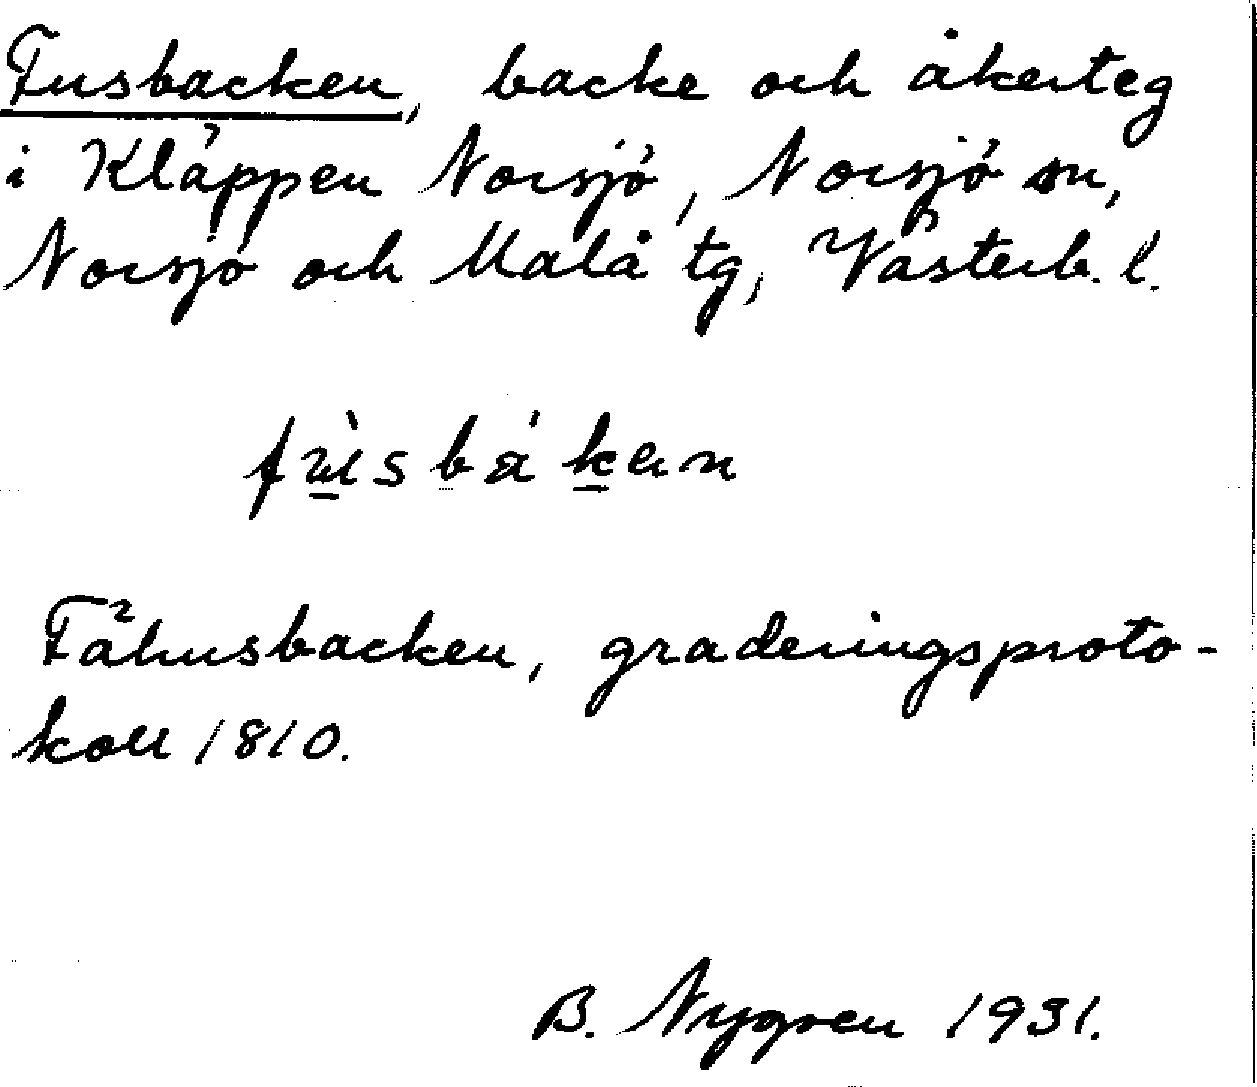 Fusbacken, backe och åkerteg
i Kläppen Norsjö, Norsjö sn,
Norsjö och Malå tg, Västerb. l.
fùsbákən
Fähusbacken, graderingsproto-
koll 1810.
B. Nygren 1931.